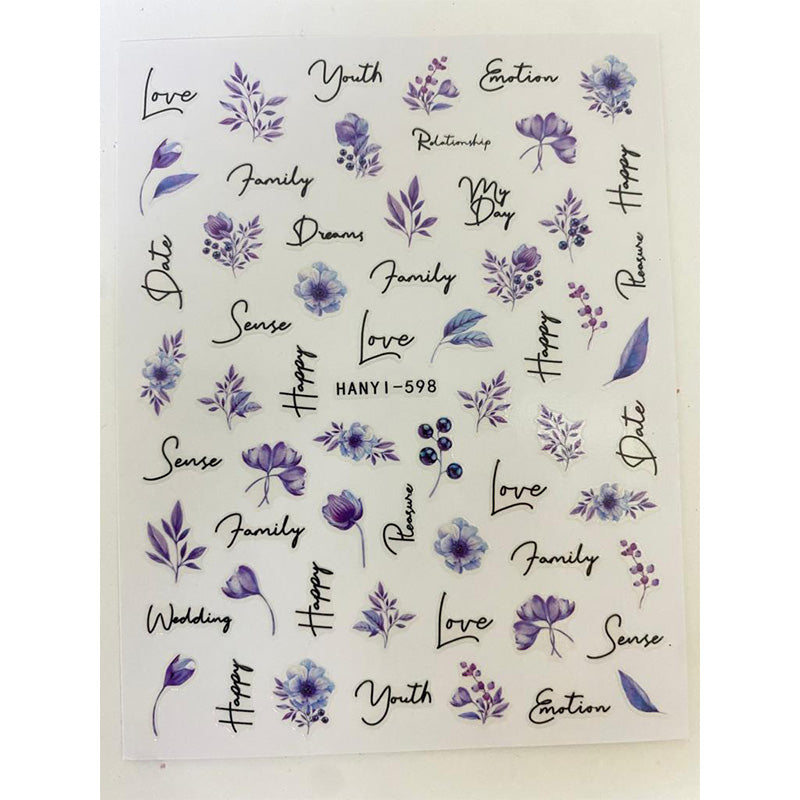 Love
Youth
Emotion
Relationship
Happy
Family
My
Day
Dreams
Date
Pleasure
Family
Sense
Love
Happy
Happy
HANYI-598
Date
Sense
Love
Pleasure
Family
Family
Happy
Wedding
Love
Sense
Happy
Youth
Emotion